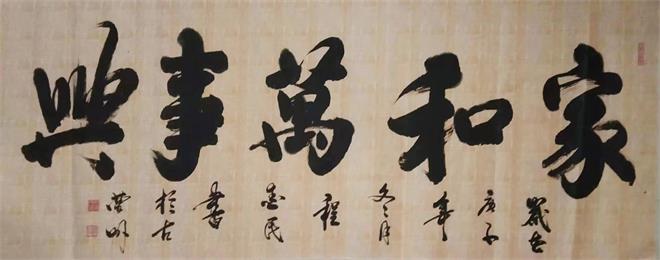 家和萬事興
歲在
庚子
年
冬月
程
民
書
於古